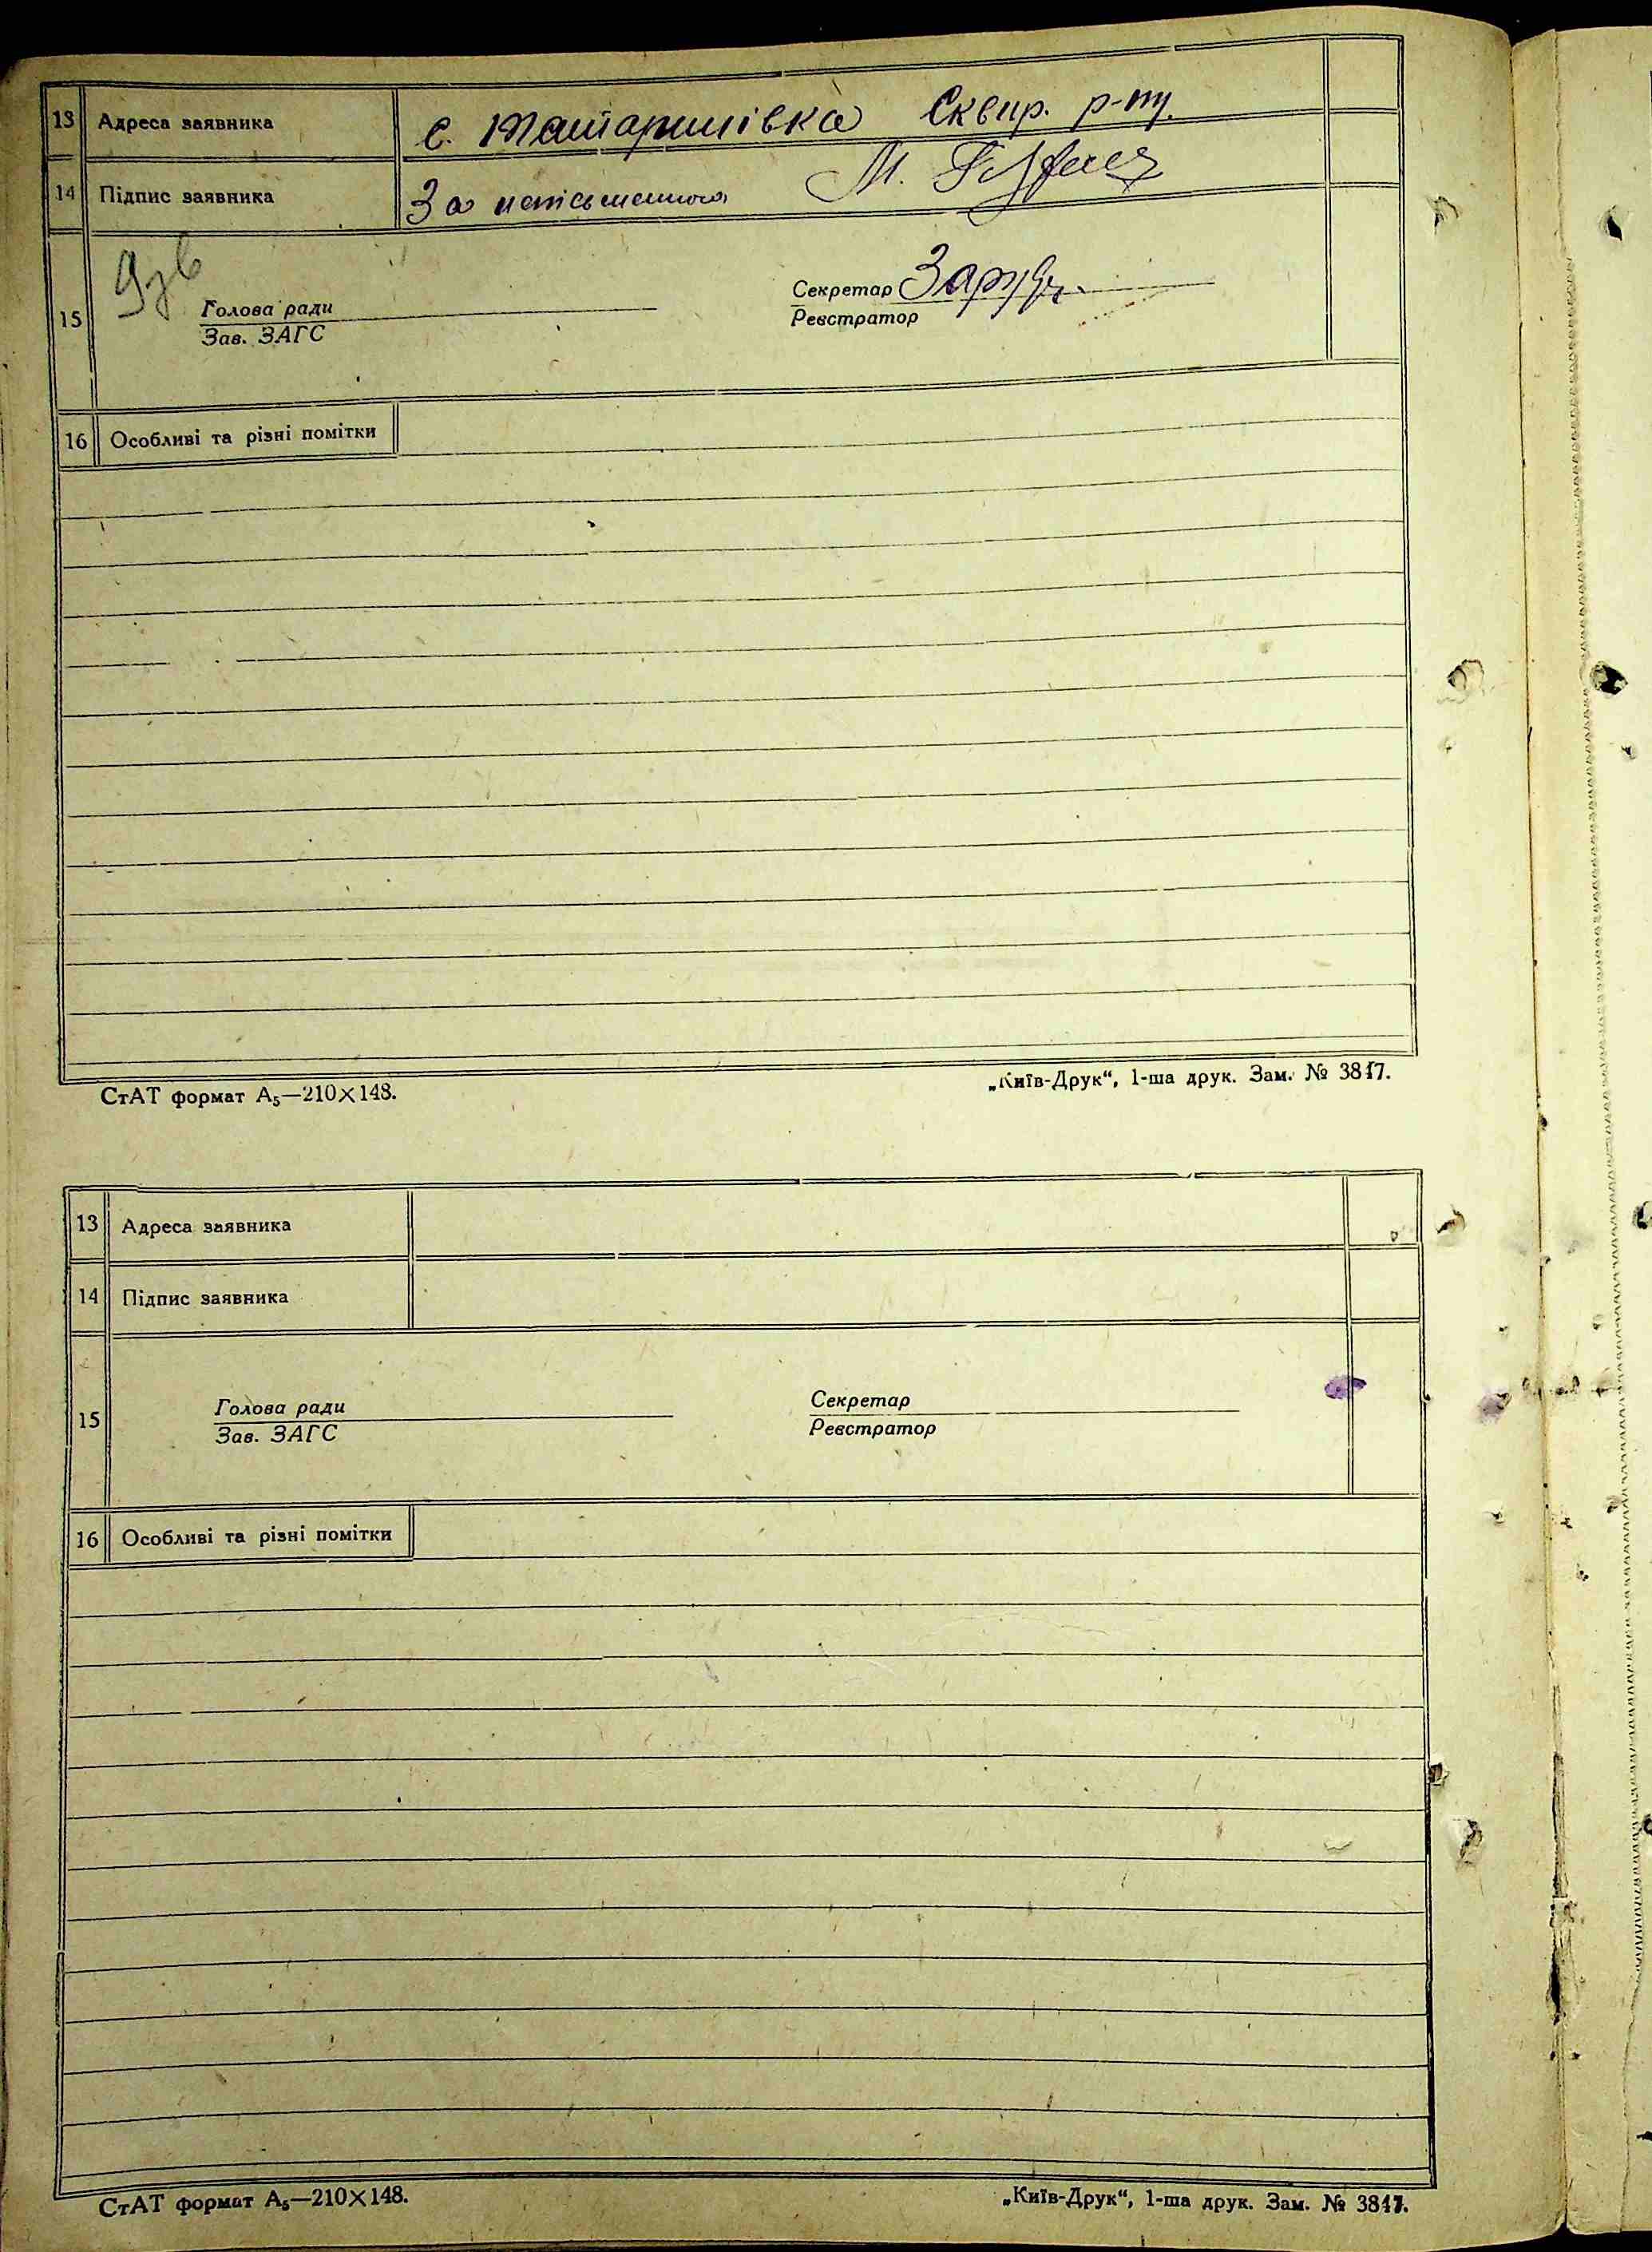 13 Адреса заявника с. Татаринівка Сквир. р-ну.
14 Підпис заявника За неписьменного М.
15
Секретар
Голова ради
Реєстратор
Зав. ЗАГС
16 Особливі та різні помітки
СтАТ формат А5—210×148. „Київ-Друк“, 1-ша друк. Зам. № 3817.
13 Адреса заявника
14 Підпис заявника
15
Голова ради Секретар
Зав. ЗАГС Реєстратор
16 Особливі та різні помітки
СтАТ формат А5—210×148. „Київ-Друк“, 1-ша друк. Зам. № 3817.